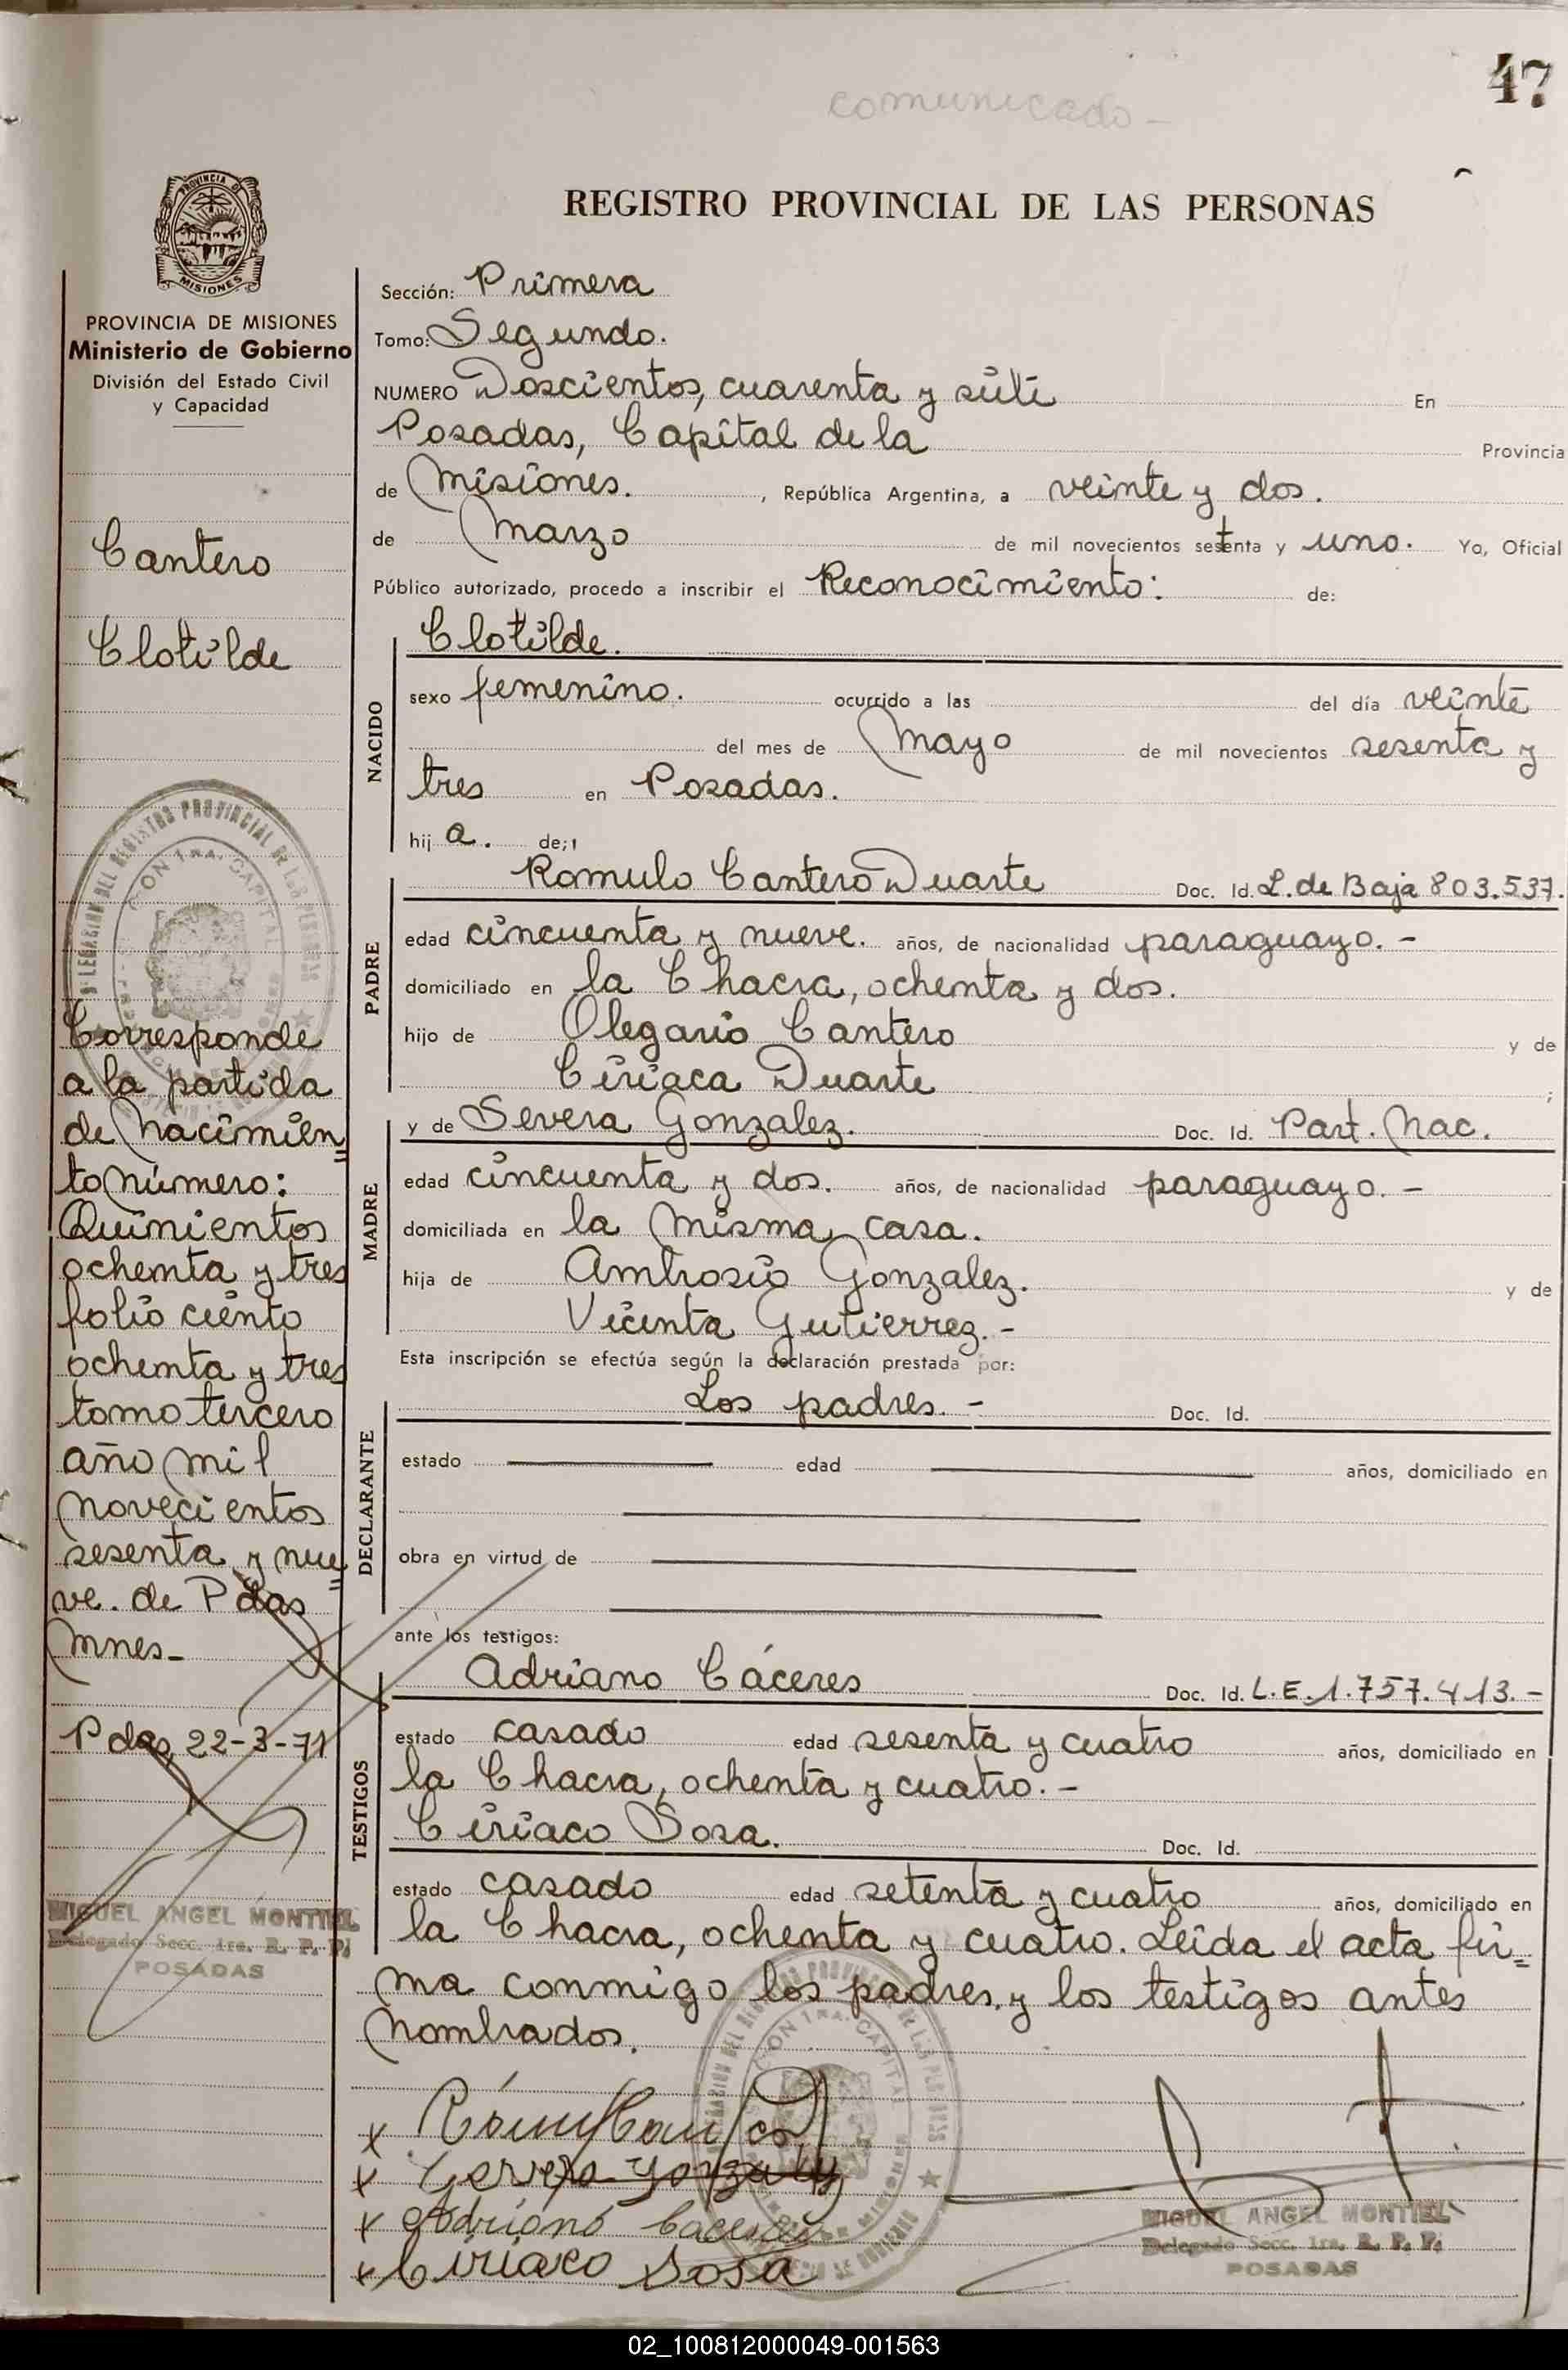 47
comunicado -
PROVINCIA DE
MISIONES
REGISTRO PROVINCIAL DE LAS PERSONAS
PROVINCIA DE MISIONES
Ministerio de Gobierno
División del Estado Civil
y Capacidad
Cantero
Clotilde
Corresponde
a la partida
de nacimien=
to número:
Quinientos
ochenta y tres
folio ciento
ochenta y tres
tomo tercero
año mil
novecientos
sesenta y nue=
ve. de Pdas
Mnes_
Pdas, 22-3-71
MIGUEL ANGEL MONTIEL
Delegado Secc. 1ra. R. P. P.
POSADAS
Sección: Primera
Tomo: Segundo.
NUMERO Doscientos, cuarenta y siete En
Posadas, Capital de la Provincia
de Misiones. , República Argentina, a veinte y dos.
de Marzo de mil novecientos setenta y uno. Yo, Oficial
Público autorizado, procedo a inscribir el Reconocimiento: de:
NACIDO
Clotilde.
sexo femenino. ocurrido a las del día veinte
del mes de Mayo de mil novecientos sesenta y
tres en Posadas.
hij a. de;
PADRE
Romulo Cantero Duarte Doc. Id. L. de Baja 803.537.
edad cincuenta y nueve. años, de nacionalidad paraguayo. -
domiciliado en la Chacra, ochenta y dos.
hijo de Olegario Cantero y de
Ciriaca Duarte ;
MADRE
y de Severa Gonzalez. Doc. Id. Part. Nac.
edad cincuenta y dos. años, de nacionalidad paraguayo. -
domiciliada en la misma casa.
hija de Ambrosio Gonzalez. y de
Vicenta Gutierrez. -
Esta inscripción se efectúa según la declaración prestada por:
DECLARANTE
Los padres. - Doc. Id.
estado edad años, domiciliado en
obra en virtud de
ante los testigos:
TESTIGOS
Adriano Cáceres Doc. Id. L.E. 1.757.413. -
estado casado edad sesenta y cuatro años, domiciliado en
la Chacra, ochenta y cuatro. -
Ciriaco Sosa. Doc. Id.
estado casado edad setenta y cuatro años, domiciliado en
la Chacra, ochenta y cuatro. Leida el acta fir=
ma conmigo los padres, y los testigos antes
nombrados.
x
x Gonzalez
x Adriano Caceres
x Ciriaco Sosa
MIGUEL ANGEL MONTIEL
Delegado Secc. 1ra. R. P. P.
POSADAS
02_100812000049-001563